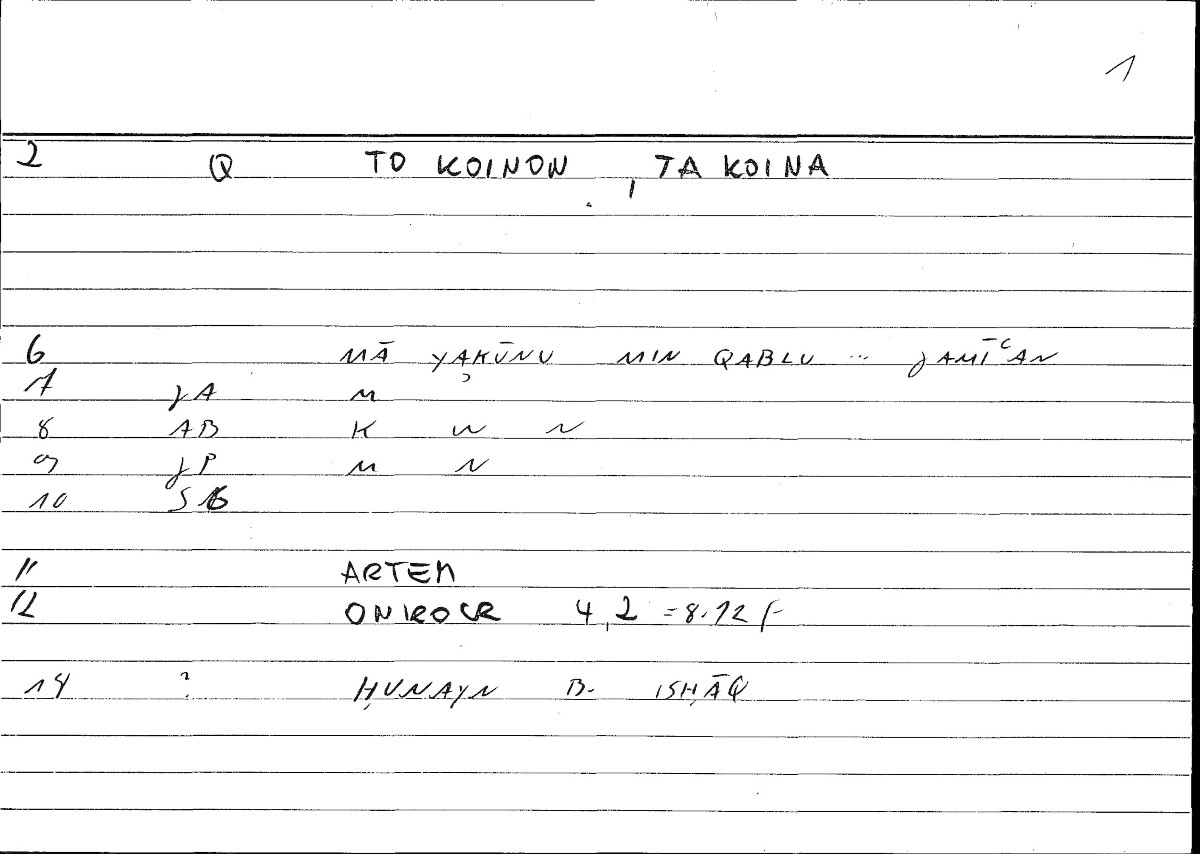 1
2 Q TO KOINON, TA KOINA
6 MĀ YAKŪNU MIN QABLU ... JAMĪʿAN
7 JA M
8 AB K W N
9 JP M N
10
11 ARTEM
12 ONIROCR 4,2 = 8.12 f
14 ? ḤUNAYN B. ISḤĀQ